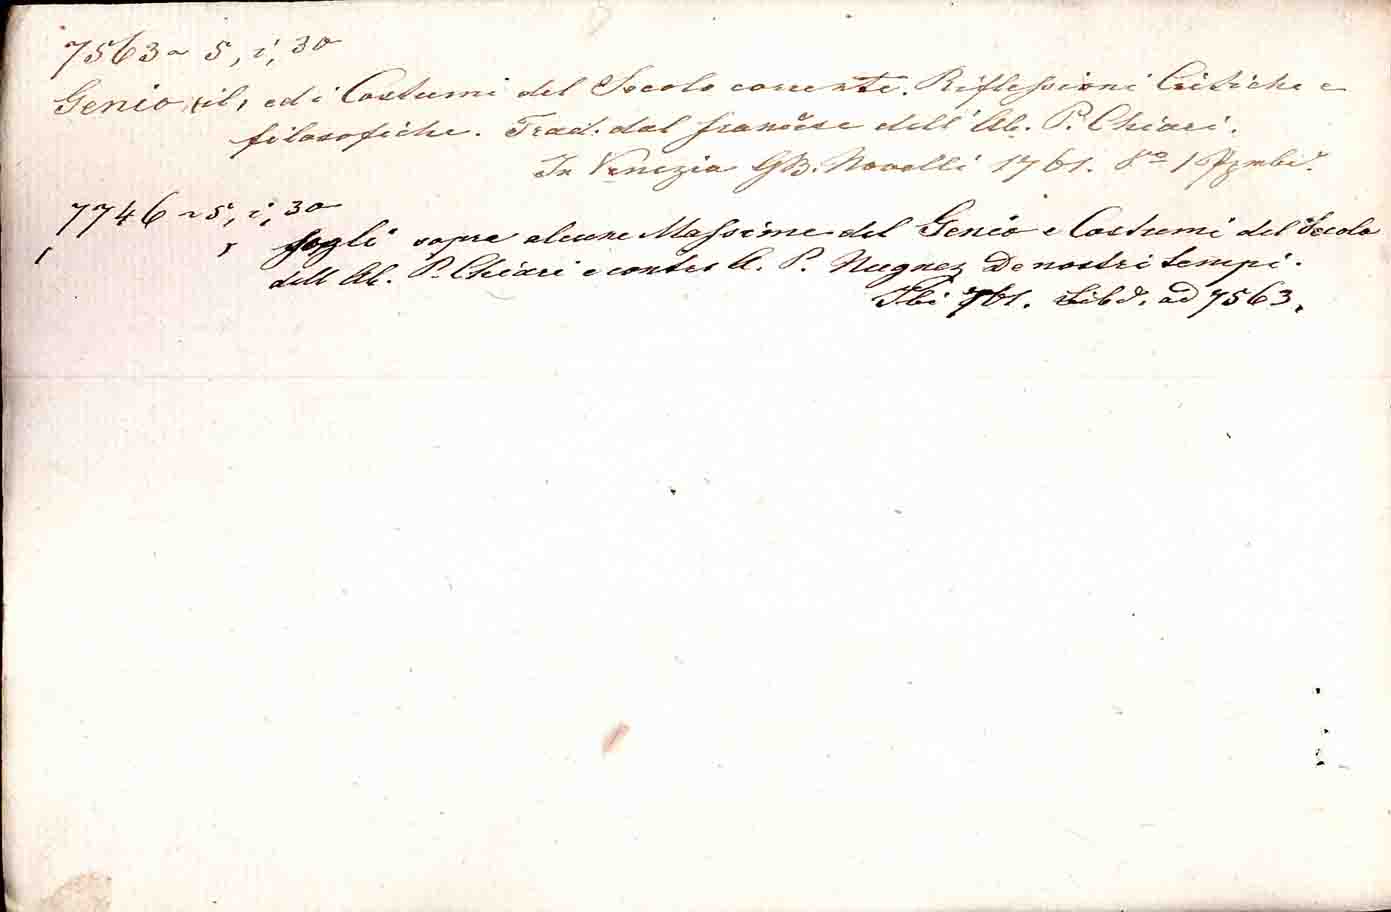 7563 ~ 5, i, 30
Genio, (il, ed i Costumi del Secolo corrente. Riflessioni Critiche e
filosofiche. Trad. dal francese dell' Ab. P. Chiari.
In Venezia GB. Novelli 1761. 8º 1
7746 ~ 5, i, 30
fogli sopra alcune Massime del Genio e Costumi del Secolo
dell Ab. P. Chiari e contro A. P. Nugnez De nostri tempi.
Ibi 761. ad 7563.